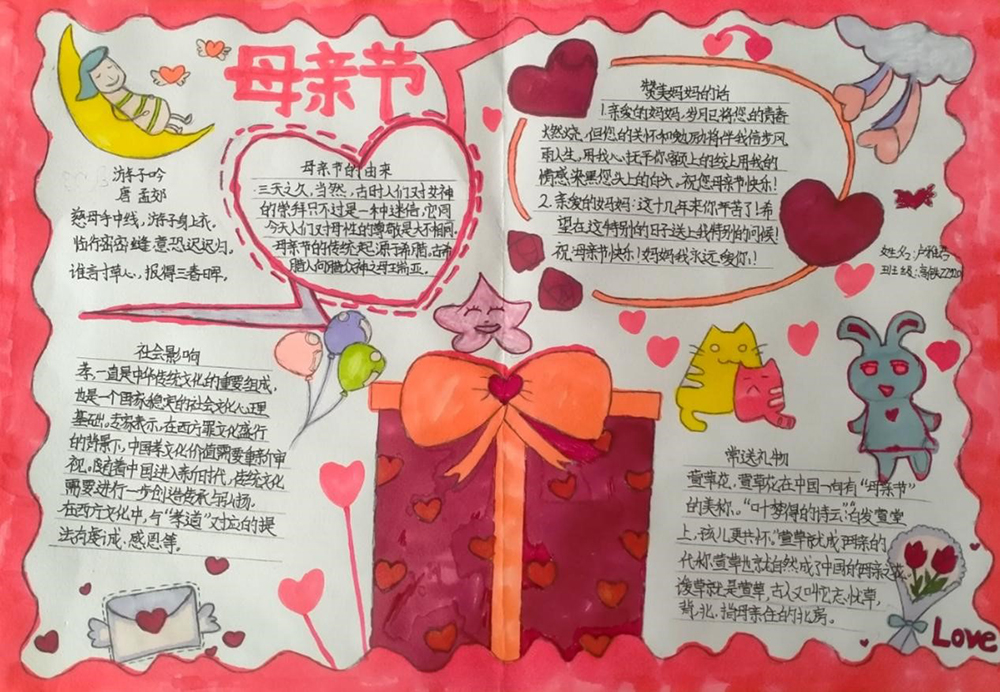 母亲节
游子吟
唐 孟郊
慈母手中线,游子身上衣,
临行密密缝 意恐迟迟归。
谁言寸草心,报得三春晖,
母亲节的由来
三天之久,当然,古时人们对女神
的崇拜只不过是一种迷信,它同
今天人们对母性的尊敬是大不相同,
母亲节的传统起源于希腊,古希
腊人向腊众神之母王 亚。
赞美妈妈的话
1.亲爱的妈妈,岁月已将您的青春
燃烧,但您的关怀和勉励将伴我信步风
雨人生,用我心抚平你额上的纹上用我的
情感染黑您头上的白头,祝您母亲节快乐!
2.亲爱的妈妈:这十几年来你辛苦了!希
望在这特别的日子送上我特别的问候!
祝:母亲节快乐!妈妈我永远爱你!
姓名:卢
班级:
社会影响
孝,一直是中华传统文化的重要组成,
也是一个国家稳定的社会文化心理
基础。专家表示,在西方 文化盛行
的背景下,中国孝文化价值需要重新审
视。随着中国进入新的时代,传统文化
需要进行一步创造传承与弘扬。
在西方文化中,与“孝道”对应的提
法有虔诚,感恩等。
常送礼物
萱草花,萱草花在中国一向有“母亲节”
的美称。“叶梦得的诗云:“白发萱堂
上,孩儿更共怀。“萱草就成母亲的
代称萱草也就自然成了中国的母亲
草就是萱草,古人又叫它忘忧草,
背,北,指母亲住的北房。
Love